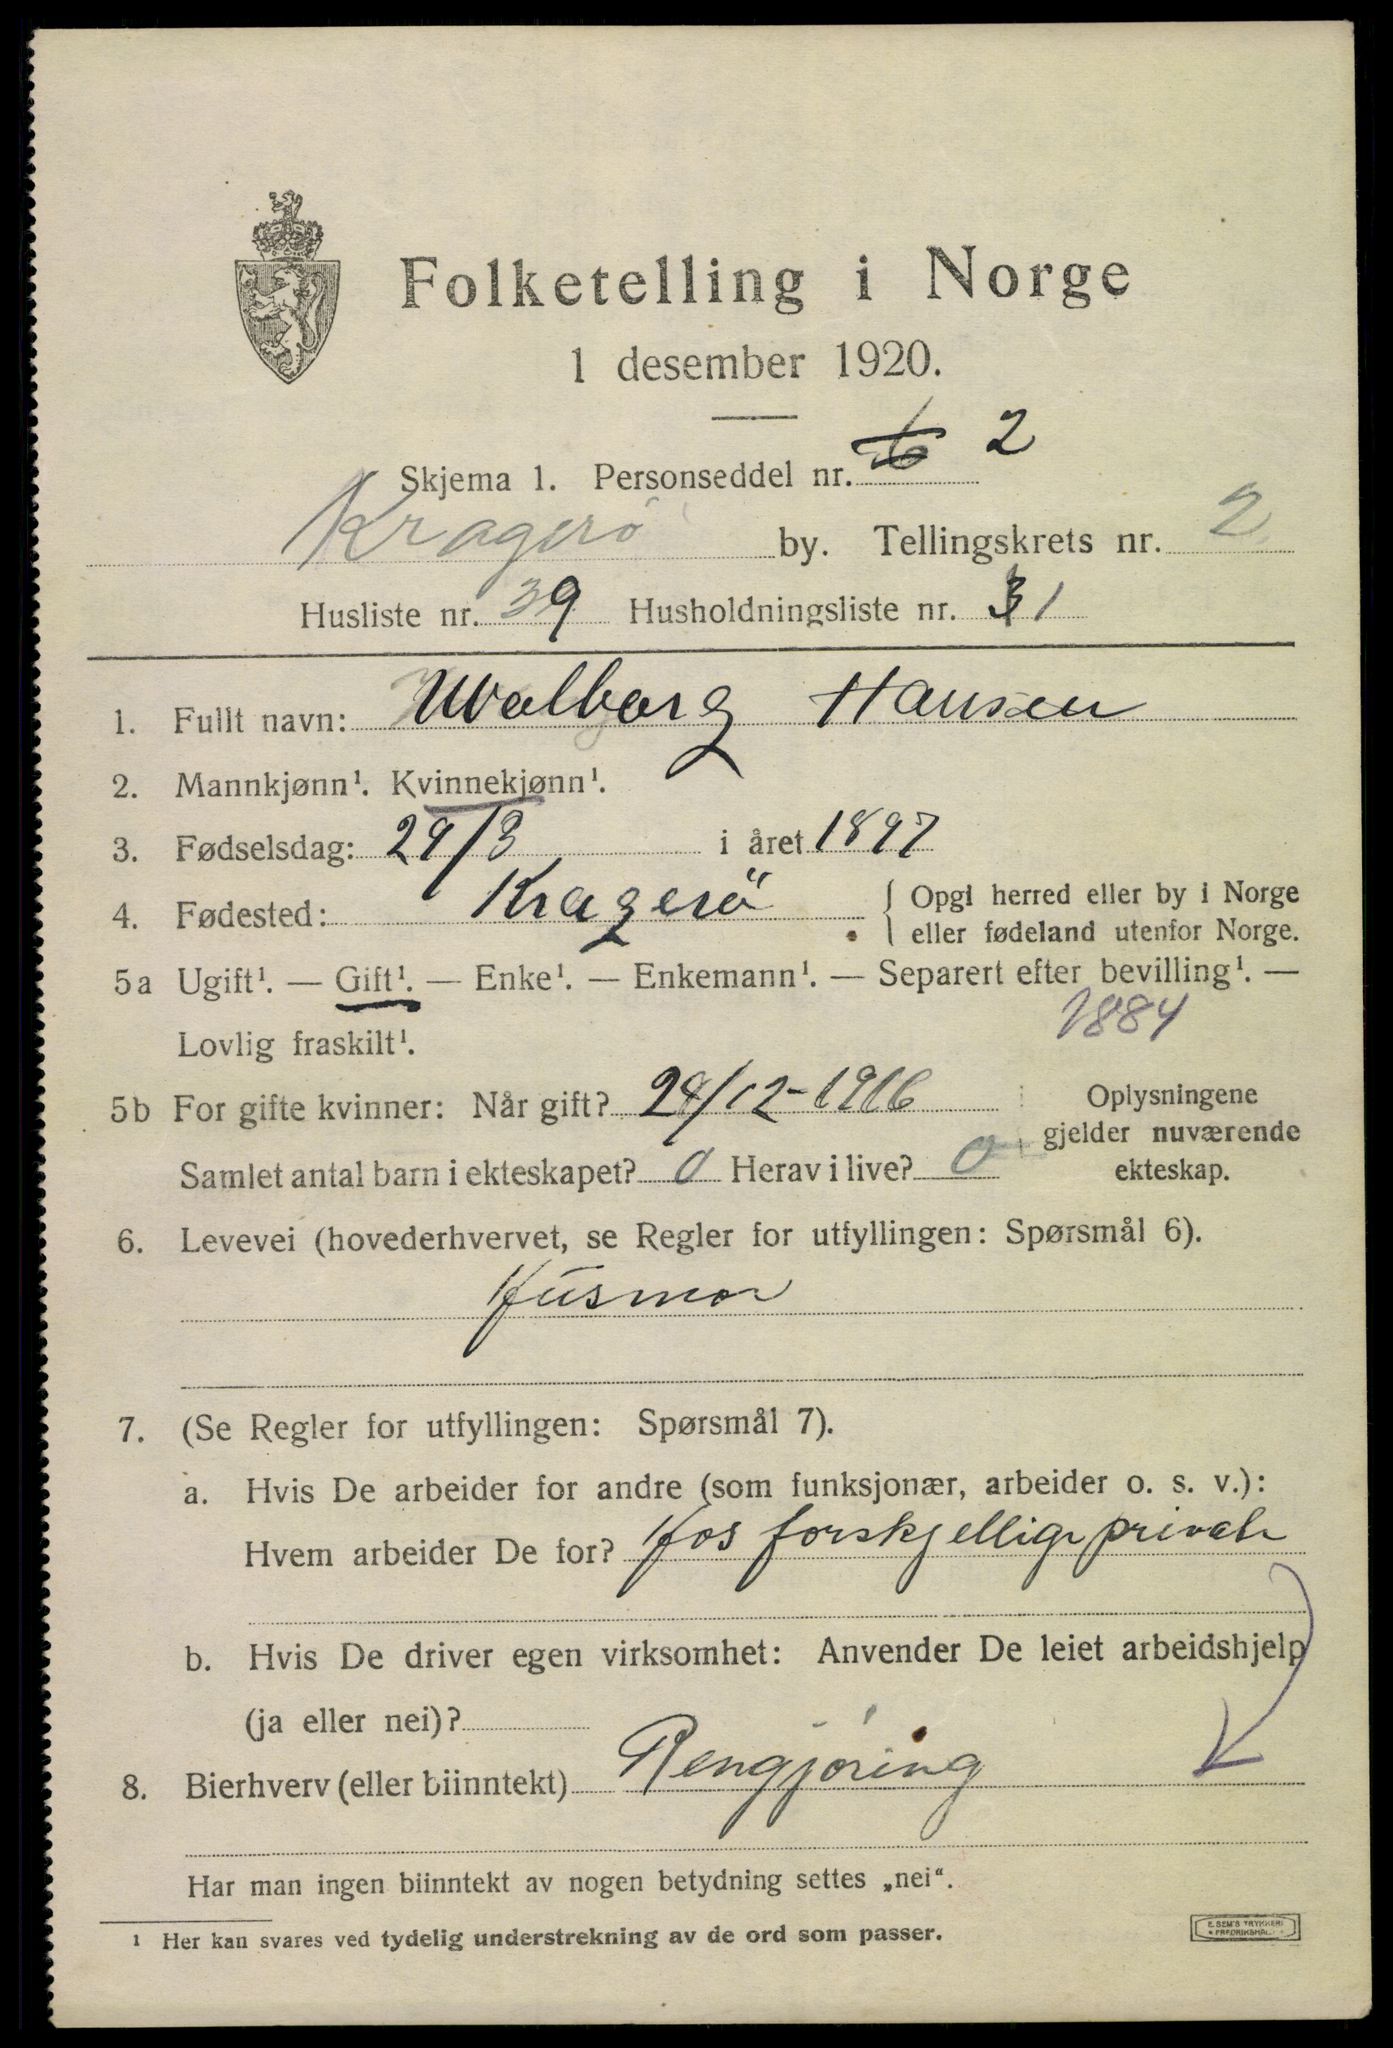 Folketelling i Norge
1 desember 1920.
Skjema 1. Personseddel nr. 2
Kragerö by. Tellingskrets nr. 2
Husliste nr. 39 Husholdningsliste nr. 1
1. Fullt navn: Walborg Hansen
2. Mannkjønn¹. Kvinnekjønn¹.
3. Fødselsdag: 29/3 i året 1897
4. Fødested: Kragerö { Opgi herred eller by i Norge
eller fødeland utenfor Norge.
5a Ugift¹. — Gift¹. — Enke¹. — Enkemann¹. — Separert efter bevilling¹. —
Lovlig fraskilt¹. 1884
5b For gifte kvinner: Når gift? 24/12-1916 Oplysningene
gjelder nuværende
Samlet antal barn i ekteskapet? 0 Herav i live? 0 ekteskap.
6. Levevei (hovederhvervet, se Regler for utfyllingen: Spørsmål 6).
Husmor
7. (Se Regler for utfyllingen: Spørsmål 7).
a. Hvis De arbeider for andre (som funksjonær, arbeider o. s. v.):
Hvem arbeider De for? Hos forskjellige private
b. Hvis De driver egen virksomhet: Anvender De leiet arbeidshjelp
(ja eller nei)?
8. Bierhverv (eller biinntekt) Rengjøring
Har man ingen biinntekt av nogen betydning settes „nei“.
¹ Her kan svares ved tydelig understrekning av de ord som passer.
E. SEM'S TRYKKERI